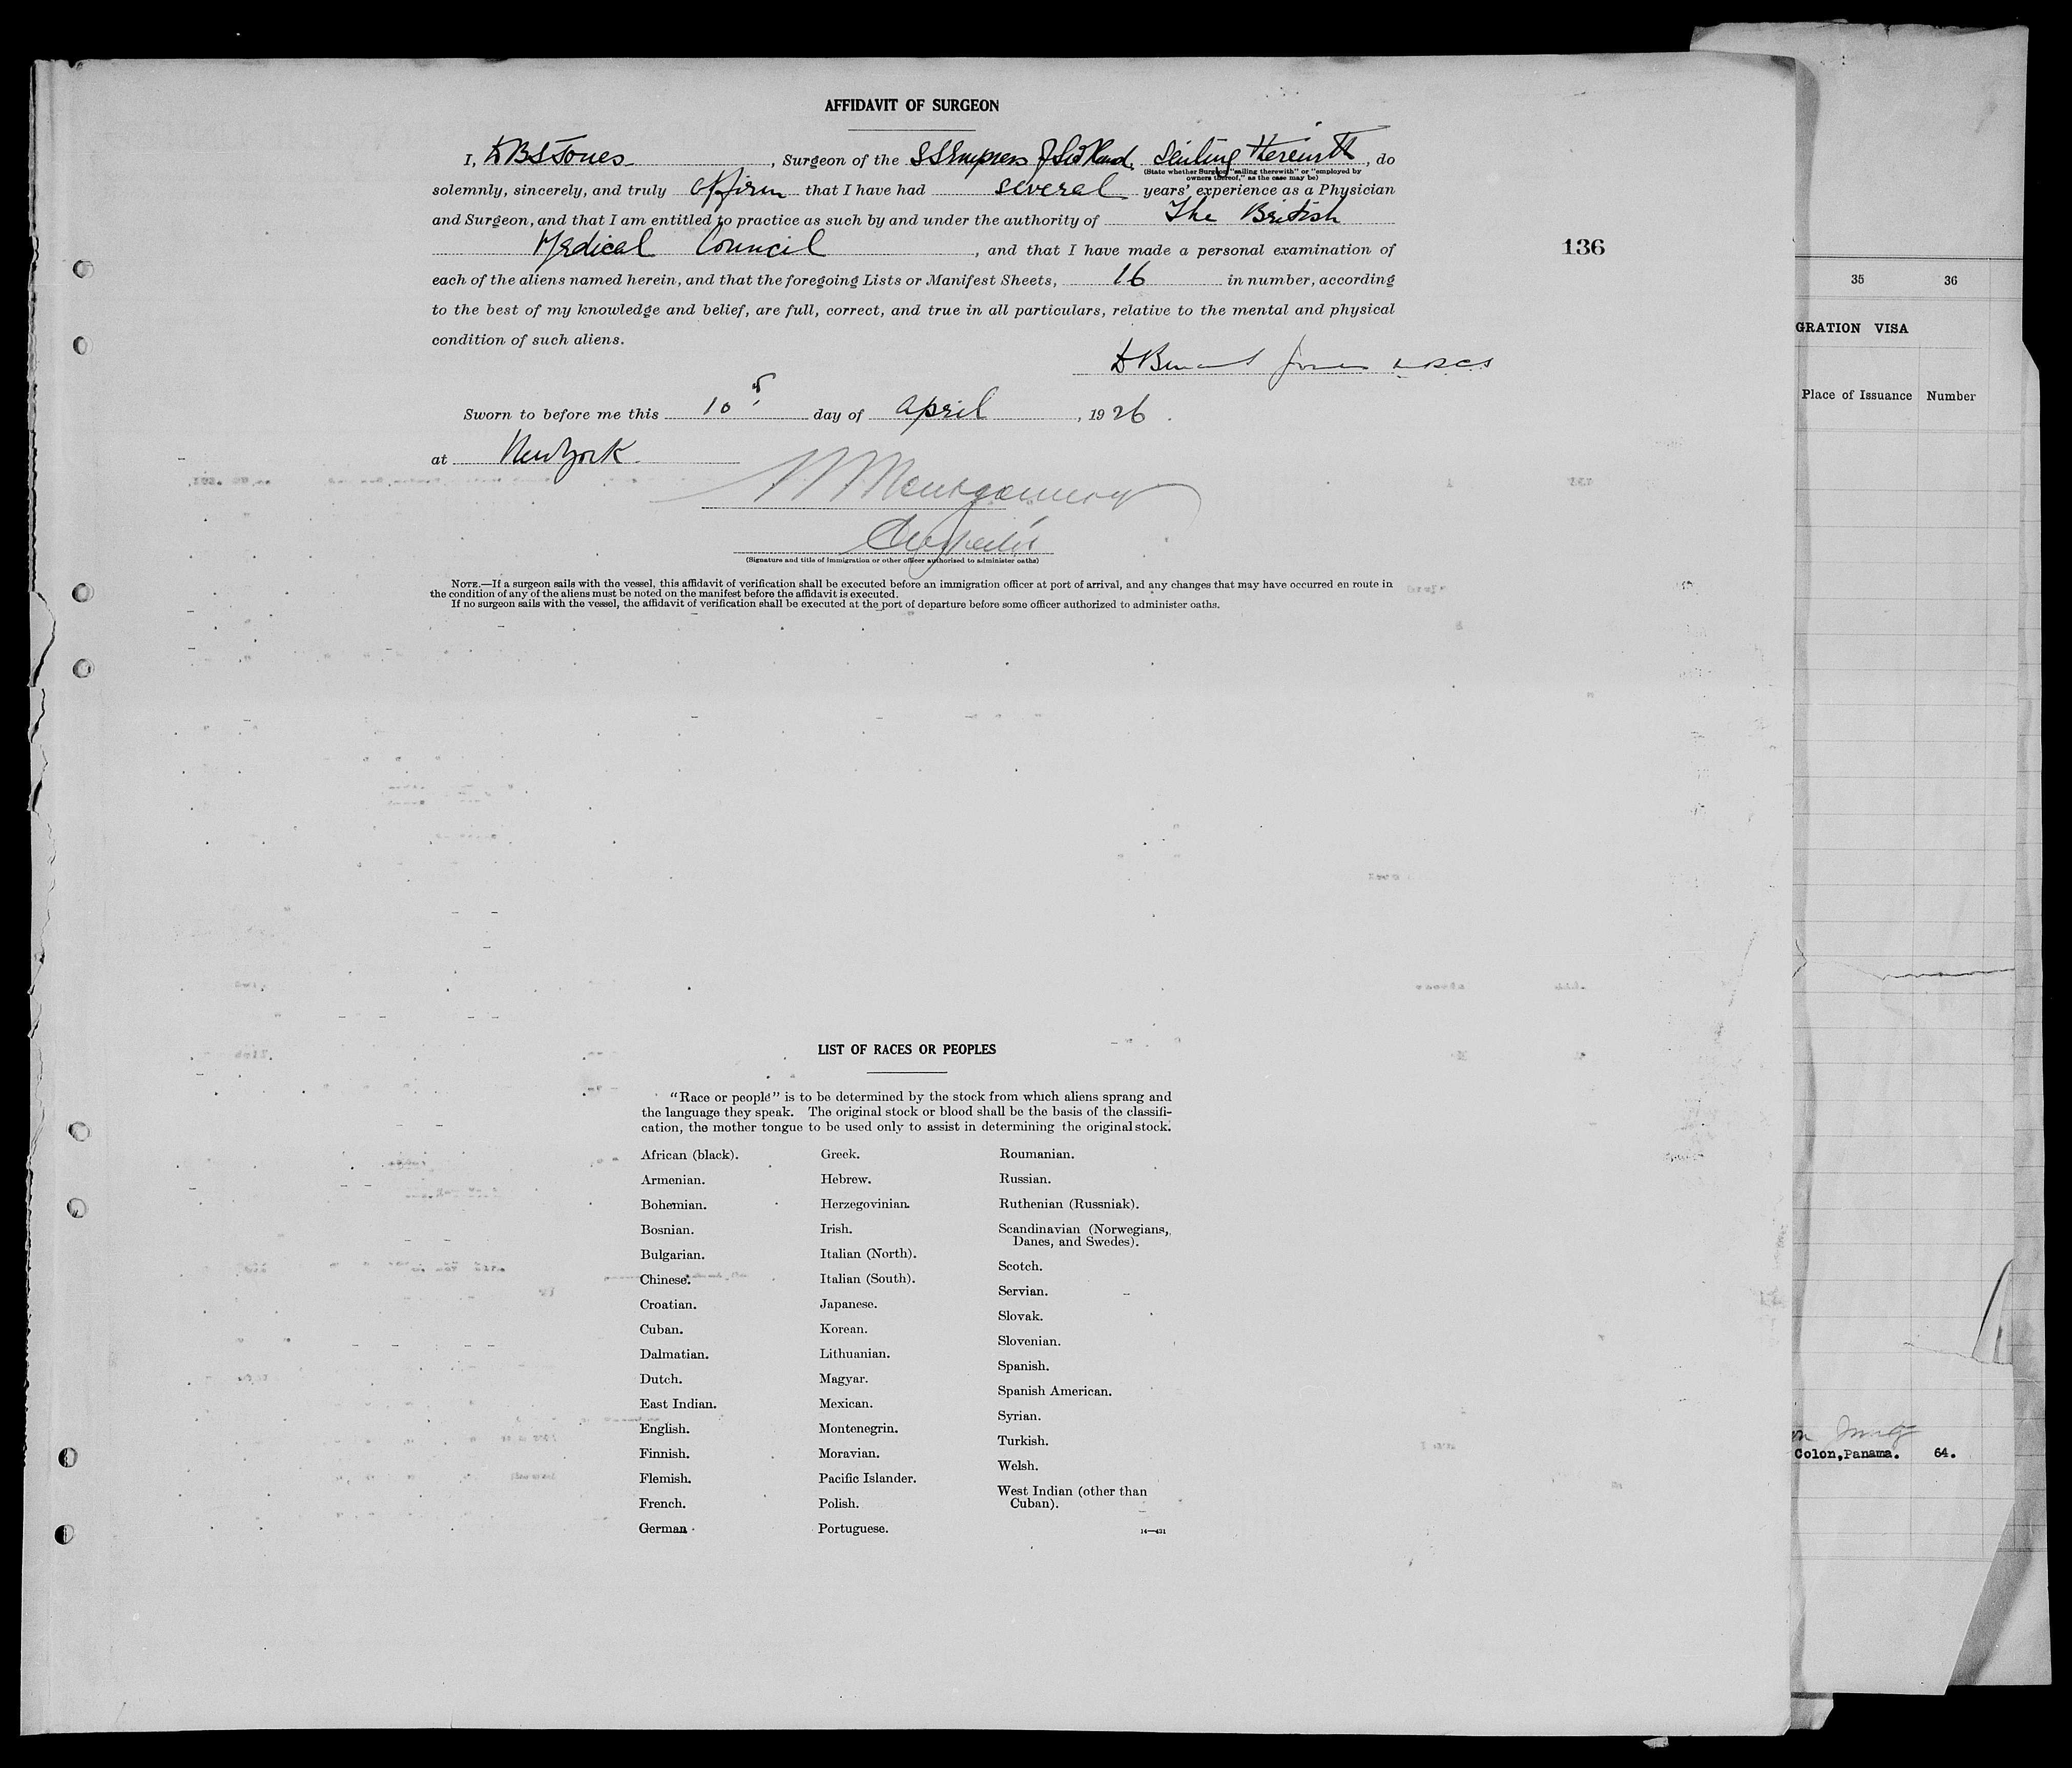 AFFIDAVIT OF SURGEON
I, D B S Jones, Surgeon of the SS Empress of Scotland. Sailing therewith, do
(State whether Surgeon "sailing therewith" or "employed by
owners thereof," as the case may be)
solemnly, sincerely, and truly affirm that I have had several years' experience as a Physician
and Surgeon, and that I am entitled to practice as such by and under the authority of The British
Medical Council, and that I have made a personal examination of
136
each of the aliens named herein, and that the foregoing Lists or Manifest Sheets, 16 in number, according
to the best of my knowledge and belief, are full, correct, and true in all particulars, relative to the mental and physical
condition of such aliens.
Jones
Sworn to before me this 10 day of April, 1926.
at New York
Montgomery
(Signature and title of immigration or other officer authorized to administer oaths)
NOTE.—If a surgeon sails with the vessel, this affidavit of verification shall be executed before an immigration officer at port of arrival, and any changes that may have occurred en route in
the condition of any of the aliens must be noted on the manifest before the affidavit is executed.
If no surgeon sails with the vessel, the affidavit of verification shall be executed at the port of departure before some officer authorized to administer oaths.
LIST OF RACES OR PEOPLES
"Race or people" is to be determined by the stock from which aliens sprang and
the language they speak. The original stock or blood shall be the basis of the classifi-
cation, the mother tongue to be used only to assist in determining the original stock.
African (black).
Armenian.
Bohemian.
Bosnian.
Bulgarian.
Chinese.
Croatian.
Cuban.
Dalmatian.
Dutch.
East Indian.
English.
Finnish.
Flemish.
French.
German
Greek.
Hebrew.
Herzegovinian.
Irish.
Italian (North).
Italian (South).
Japanese.
Korean.
Lithuanian.
Magyar.
Mexican.
Montenegrin.
Moravian.
Pacific Islander.
Polish.
Portuguese.
Roumanian.
Russian.
Ruthenian (Russniak).
Scandinavian (Norwegians,
Danes, and Swedes).
Scotch.
Servian.
Slovak.
Slovenian.
Spanish.
Spanish American.
Syrian.
Turkish.
Welsh.
West Indian (other than
Cuban).
14—431
35 36
GRATION VISA
Place of Issuance Number
Colon,Panama. 64.